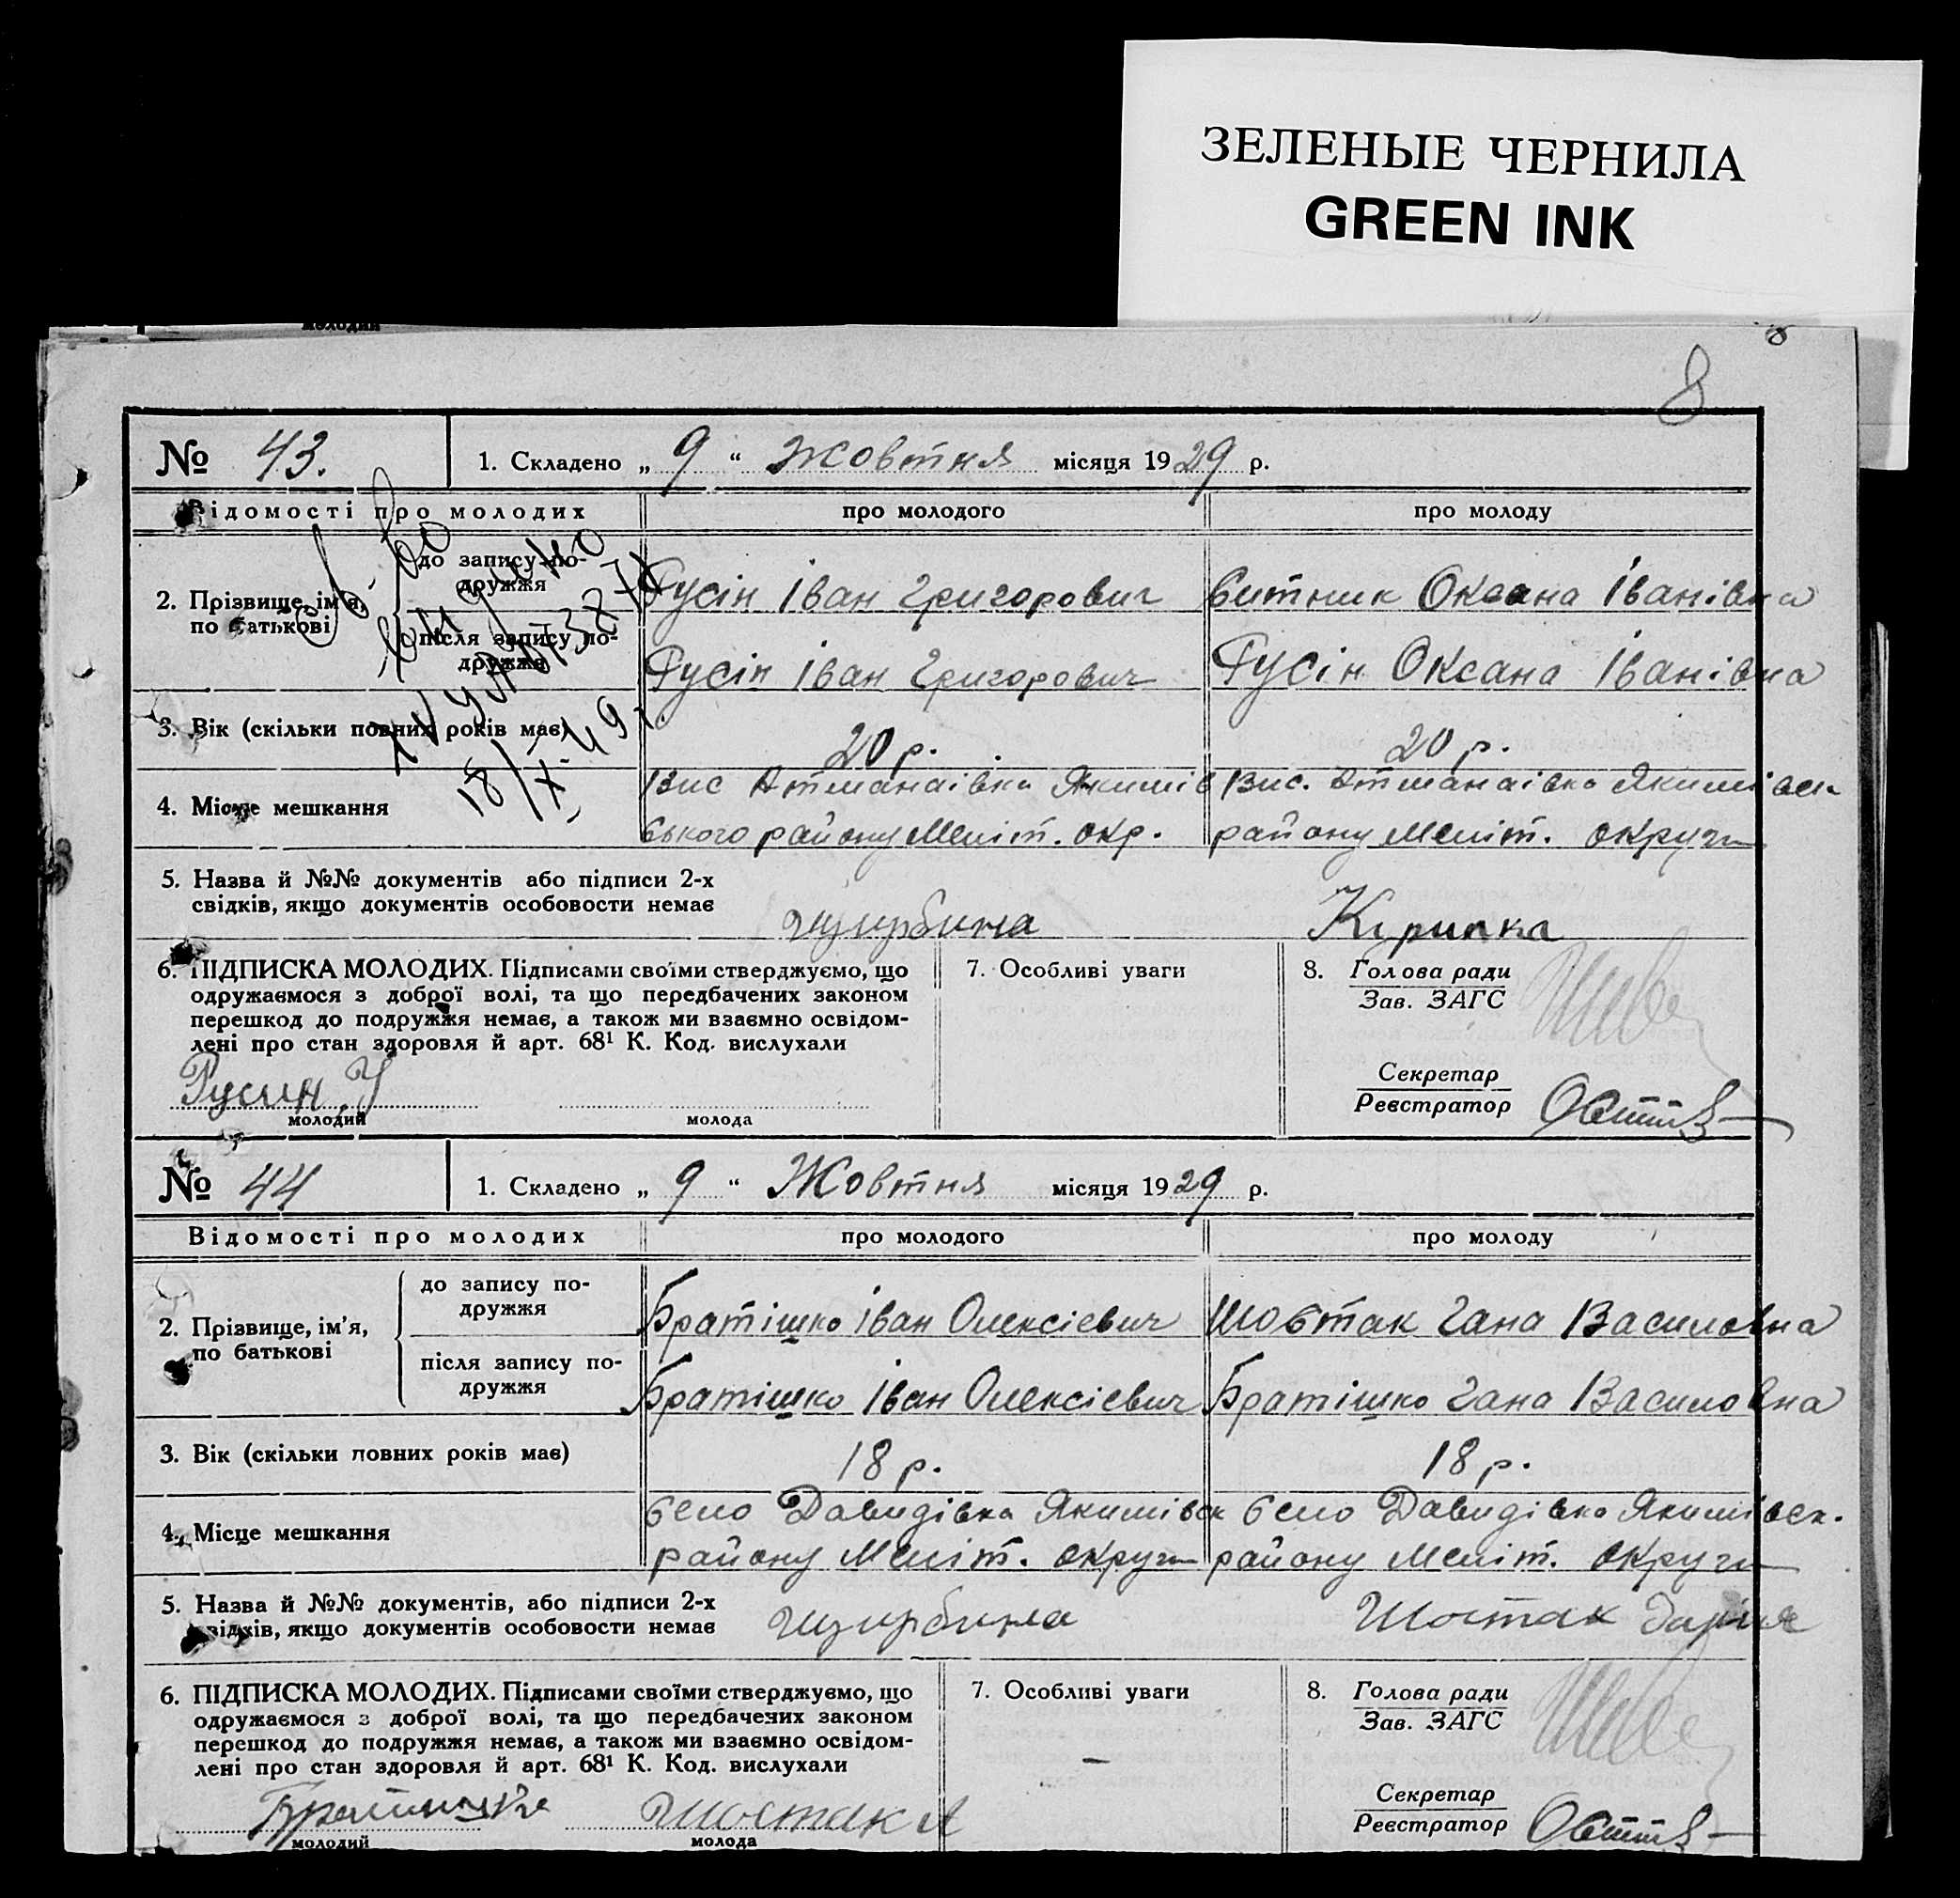 ЗЕЛЕНЫЕ ЧЕРНИЛА
GREEN INK
8
№ 43. 1. Складено „ 9 “ Жовтня місяця 1929 р.
Відомості про молодих про молодого про молоду
2. Прізвище, ім'я, по батькові
до запису подружжя Гусін Іван Григорович Ситник Оксана Іванівна
після запису подружжя Гусін Іван Григорович Гусін Оксана Іванівна
Св-во выдано
18/X-49 г.
3. Вік (скільки повних років має) 20 р. 20 р.
4. Місце мешкання Вис Атманаівка Якимів Вис. Атманаівка Якимівск
ського району Меліт. окр. району Меліт. округи
5. Назва й №№ документів або підписи 2-х
свідків, якщо документів особовости немає Щирбина Кірипка
6. ПІДПИСКА МОЛОДИХ. Підписами своїми стверджуємо, що
одружаємося з доброї волі, та що передбачених законом
перешкод до подружжя немає, а також ми взаємно освідом-
лені про стан здоровля й арт. 68¹ К. Код. вислухали
Гусин. У
молодий молода
7. Особливі уваги
8. Голова ради
Зав. ЗАГС
Секретар
Реєстратор
№ 44 1. Складено „ 9 “ Жовтня місяця 1929 р.
Відомості про молодих про молодого про молоду
2. Прізвище, ім'я,
по батькові
до запису по-
дружжя Братішко Іван Олексієвич Шостак Гана Василовна
після запису по-
дружжя Братішко Іван Олексієвич Братішко Гана Василовна
3. Вік (скільки повних років має) 18 р. 18 р.
4. Місце мешкання село Давидівка Якимівск село Давидівка Якимівск.
району Меліт. округи району Меліт. округи
5. Назва й №№ документів, або підписи 2-х
свідків, якщо документів особовости немає Щирбина Шостак
6. ПІДПИСКА МОЛОДИХ. Підписами своїми стверджуємо, що
одружаємося з доброї волі, та що передбачених законом
перешкод до подружжя немає, а також ми взаємно освідом-
лені про стан здоровля й арт. 68¹ К. Код. вислухали
Братишко Шостак А
молодий молода
7. Особливі уваги
–
8. Голова ради
Зав. ЗАГС
Секретар
Реєстратор